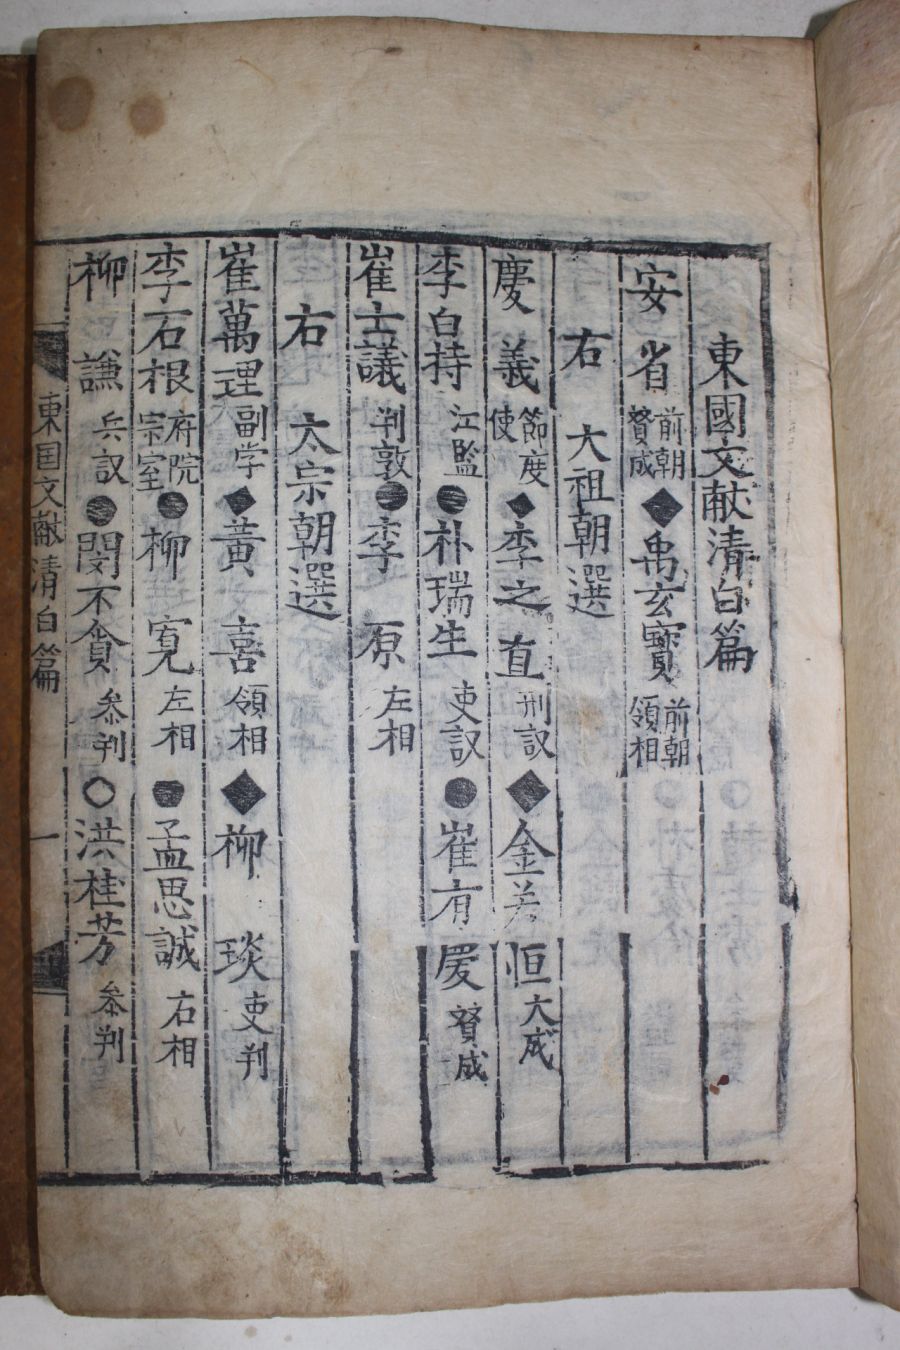 東國文献清白篇
安省 前朝贊成 ◆禹玄寶 前朝領相
右 大祖朝選
慶義 節度使 ◆李之直 刑議 ◆金若恒 大成
李白持 江監 ●朴瑞生 吏議 ●崔有慶 贊成
崔士議 判敦 ●李原 左相
右 太宗朝選
崔萬理 副学 ◆黃喜 領相 ◆柳琰 吏判
李石根 府院宗室 ●柳寬 左相 ●孟思誠 右相
柳謙 兵議 ●閔不貪 参判 ○洪桂芳 参判
東国文献清白篇 一